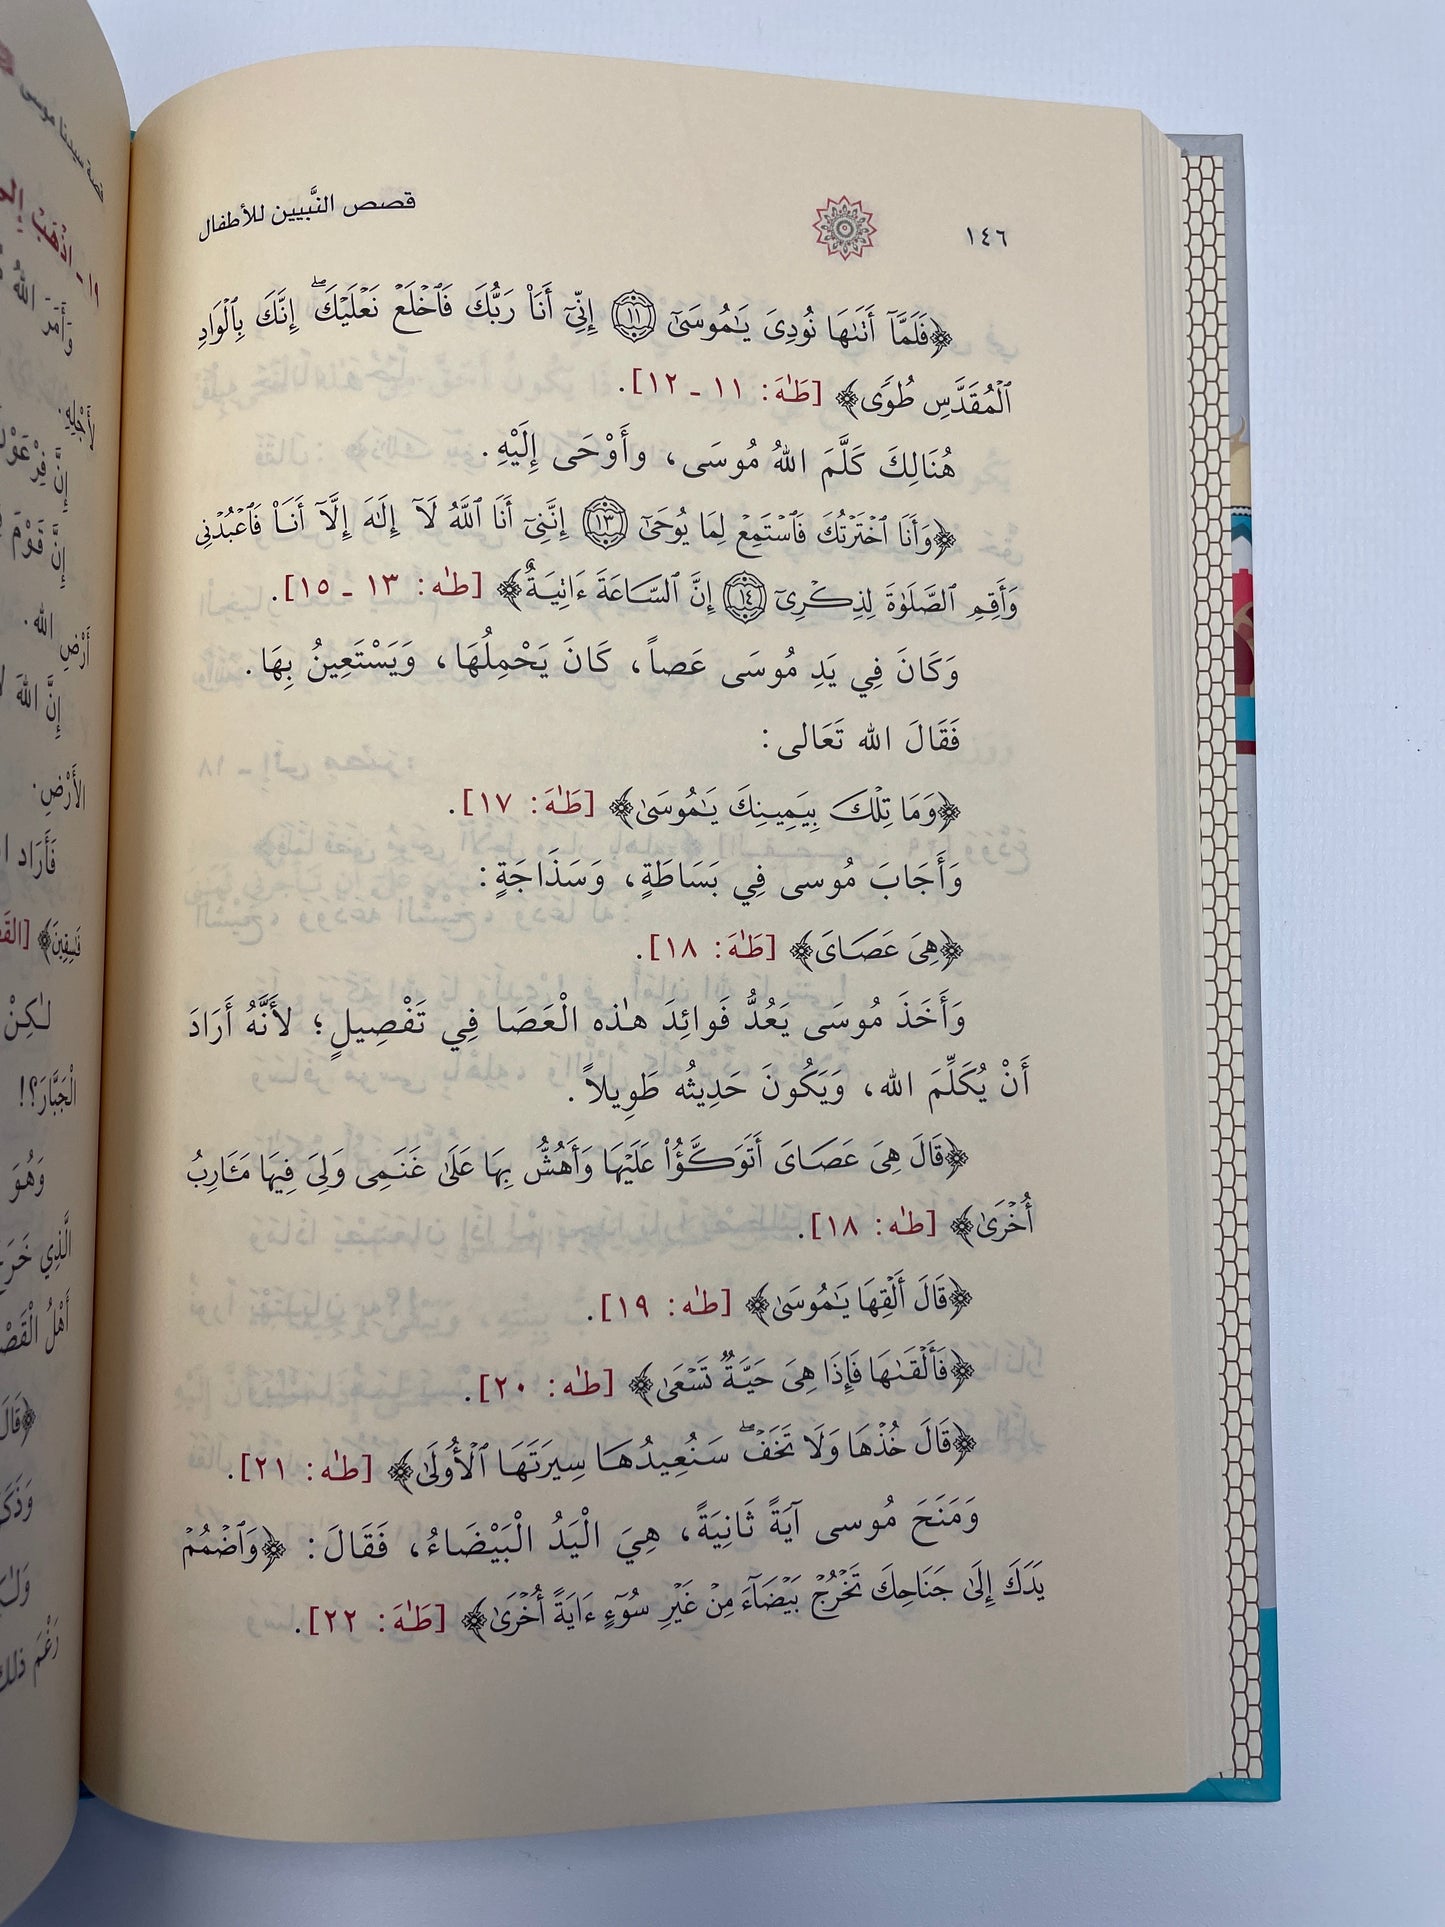 ١٤٦ قصص النَّبيين للأطفال
﴿فَلَمَّآ أَتَىٰهَا نُودِىَ يَـٰمُوسَىٰٓ ١١ إِنِّىٓ أَنَا۠ رَبُّكَ فَٱخْلَعْ نَعْلَيْكَ ۖ إِنَّكَ بِٱلْوَادِ
ٱلْمُقَدَّسِ طُوًى﴾ [طَـٰهَ: ١١ ـ ١٢].
هُنَالِكَ كَلَّمَ اللهُ مُوسَى، وأَوْحَى إِلَيْهِ.
﴿وَأَنَا ٱخْتَرْتُكَ فَٱسْتَمِعْ لِمَا يُوحَىٰٓ ١٣ إِنَّنِىٓ أَنَا ٱللَّهُ لَآ إِلَـٰهَ إِلَّآ أَنَا۠ فَٱعْبُدْنِى
وَأَقِمِ ٱلصَّلَوٰةَ لِذِكْرِىٓ ١٤ إِنَّ ٱلسَّاعَةَ ءَاتِيَةٌ﴾ [طـٰه: ١٣ ـ ١٥].
وَكَانَ فِي يَدِ مُوسَى عَصاً، كَانَ يَحْمِلُهَا، وَيَسْتَعِينُ بِهَا.
فَقَالَ الله تَعَالى:
﴿وَمَا تِلْكَ بِيَمِينِكَ يَـٰمُوسَىٰ﴾ [طَـٰهَ: ١٧].
وَأَجَابَ مُوسى فِي بَسَاطَةٍ، وَسَذَاجَةٍ:
﴿هِىَ عَصَاىَ﴾ [طَـٰهَ: ١٨].
وَأَخَذَ مُوسَى يَعُدُّ فَوائِدَ هـٰذه الْعَصَا فِي تَفْصِيلٍ؛ لأَنَّهُ أَرَادَ
أَنْ يُكَلِّمَ الله، وَيَكُونَ حَدِيثُه طَوِيلاً.
﴿قَالَ هِىَ عَصَاىَ أَتَوَكَّؤُا۟ عَلَيْهَا وَأَهُشُّ بِهَا عَلَىٰ غَنَمِى وَلِىَ فِيهَا مَـَٔارِبُ
أُخْرَىٰ﴾ [طـٰه: ١٨].
﴿قَالَ أَلْقِهَا يَـٰمُوسَىٰ﴾ [طـٰه: ١٩].
﴿فَأَلْقَىٰهَا فَإِذَا هِىَ حَيَّةٌ تَسْعَىٰ﴾ [طـٰه: ٢٠].
﴿قَالَ خُذْهَا وَلَا تَخَفْ ۖ سَنُعِيدُهَا سِيرَتَهَا ٱلْأُولَىٰ﴾ [طـٰه: ٢١].
وَمَنَحَ مُوسى آيَةً ثَانِيَةً، هِيَ الْيَدُ الْبَيْضَاءُ، فَقَالَ: ﴿وَٱضْمُمْ
يَدَكَ إِلَىٰ جَنَاحِكَ تَخْرُجْ بَيْضَآءَ مِنْ غَيْرِ سُوٓءٍ ءَايَةً أُخْرَىٰ﴾ [طَـٰهَ: ٢٢].